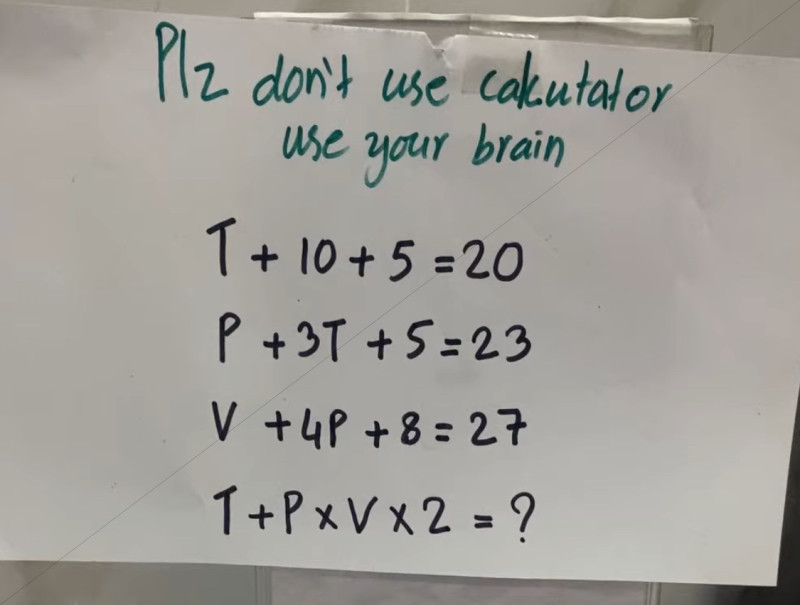 Plz don't use calkutator
use your brain
T + 10 + 5 = 20
P + 3T + 5 = 23
V + 4P + 8 = 27
T + P x V x 2 = ?